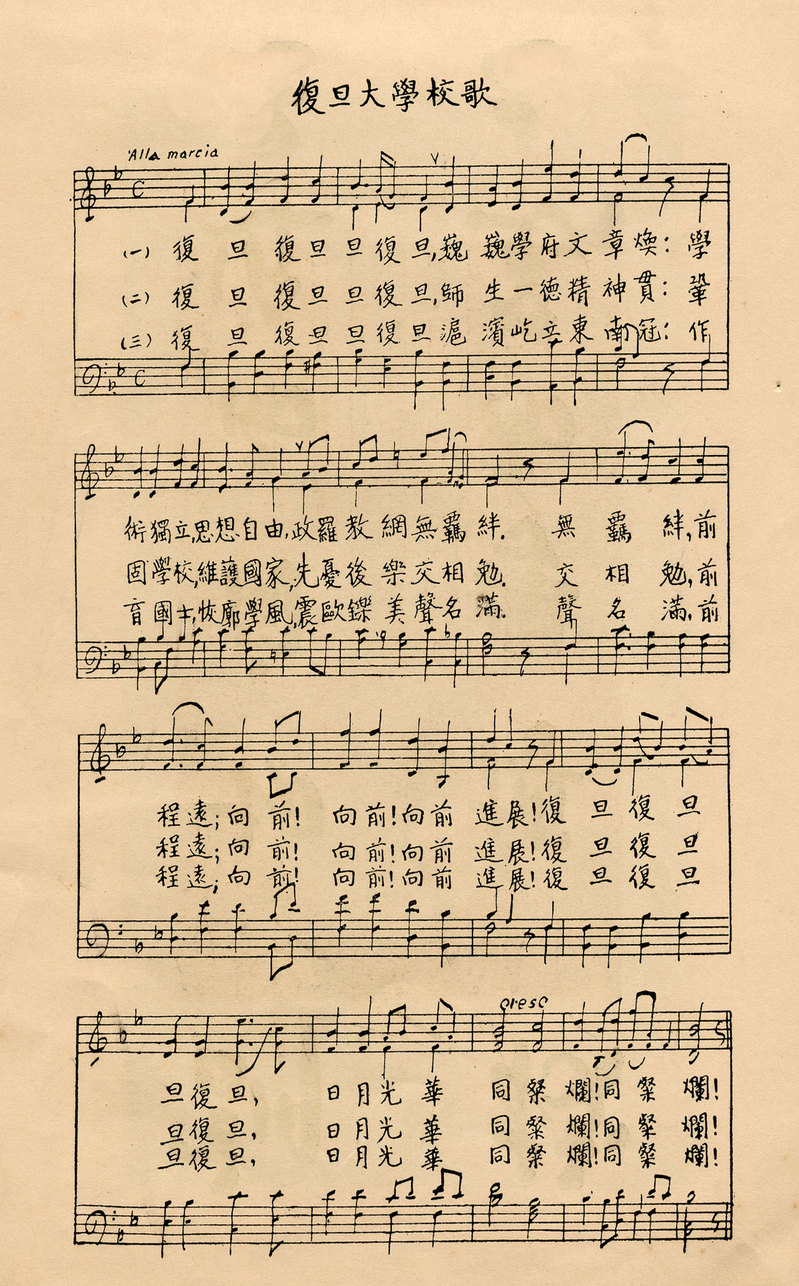 復旦大學校歌
Alla marcia
(一) 復 旦 復旦旦復旦,巍 巍學府文章煥: 學
(二) 復 旦 復旦旦復旦,師 生一德精神貫: 鞏
(三) 復 旦 復旦旦復旦滬 濱屹立東南冠: 作
術獨立,思想自由,政羅教網無羈絆. 無羈絆,前
固學校,維護國家,先憂後樂交相勉. 交相勉,前
育國士,恢廓學風,震歐鑠美聲名滿. 聲名滿,前
程遠;向前! 向前!向前 進展!復旦復旦
程遠;向前! 向前!向前 進展!復旦復旦
程遠;向前! 向前!向前 進展!復旦復旦
cresc
旦復旦, 日月光華 同粲爛!同粲爛!
旦復旦, 日月光華 同粲爛!同粲爛!
旦復旦, 日月光華 同粲爛!同粲爛!